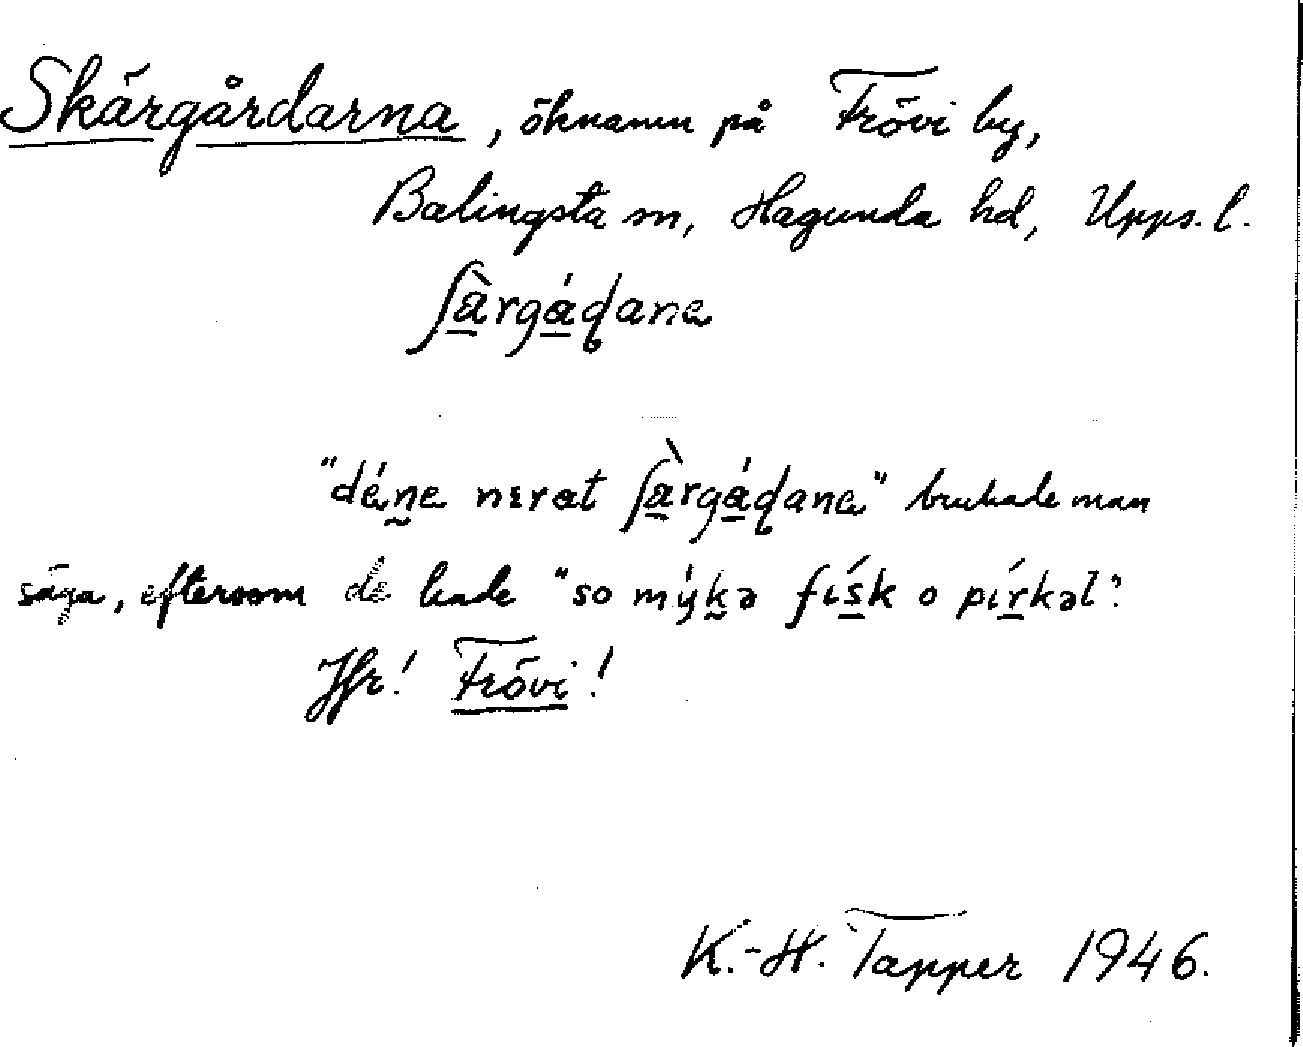 Skärgårdarna, öknamn på Frövi by,
Balingsta sn, Hagunda hd, Upps. l.
ʃà̱rgá̱ɖana
"déṉa nɪrat ʃà̱rgá̱ɖana" brukade man
säga, eftersom de hade "so mýḵə fiś̱k o piṟ́kəl".
Jfr! Frövi!
K.-H. Tapper 1946.